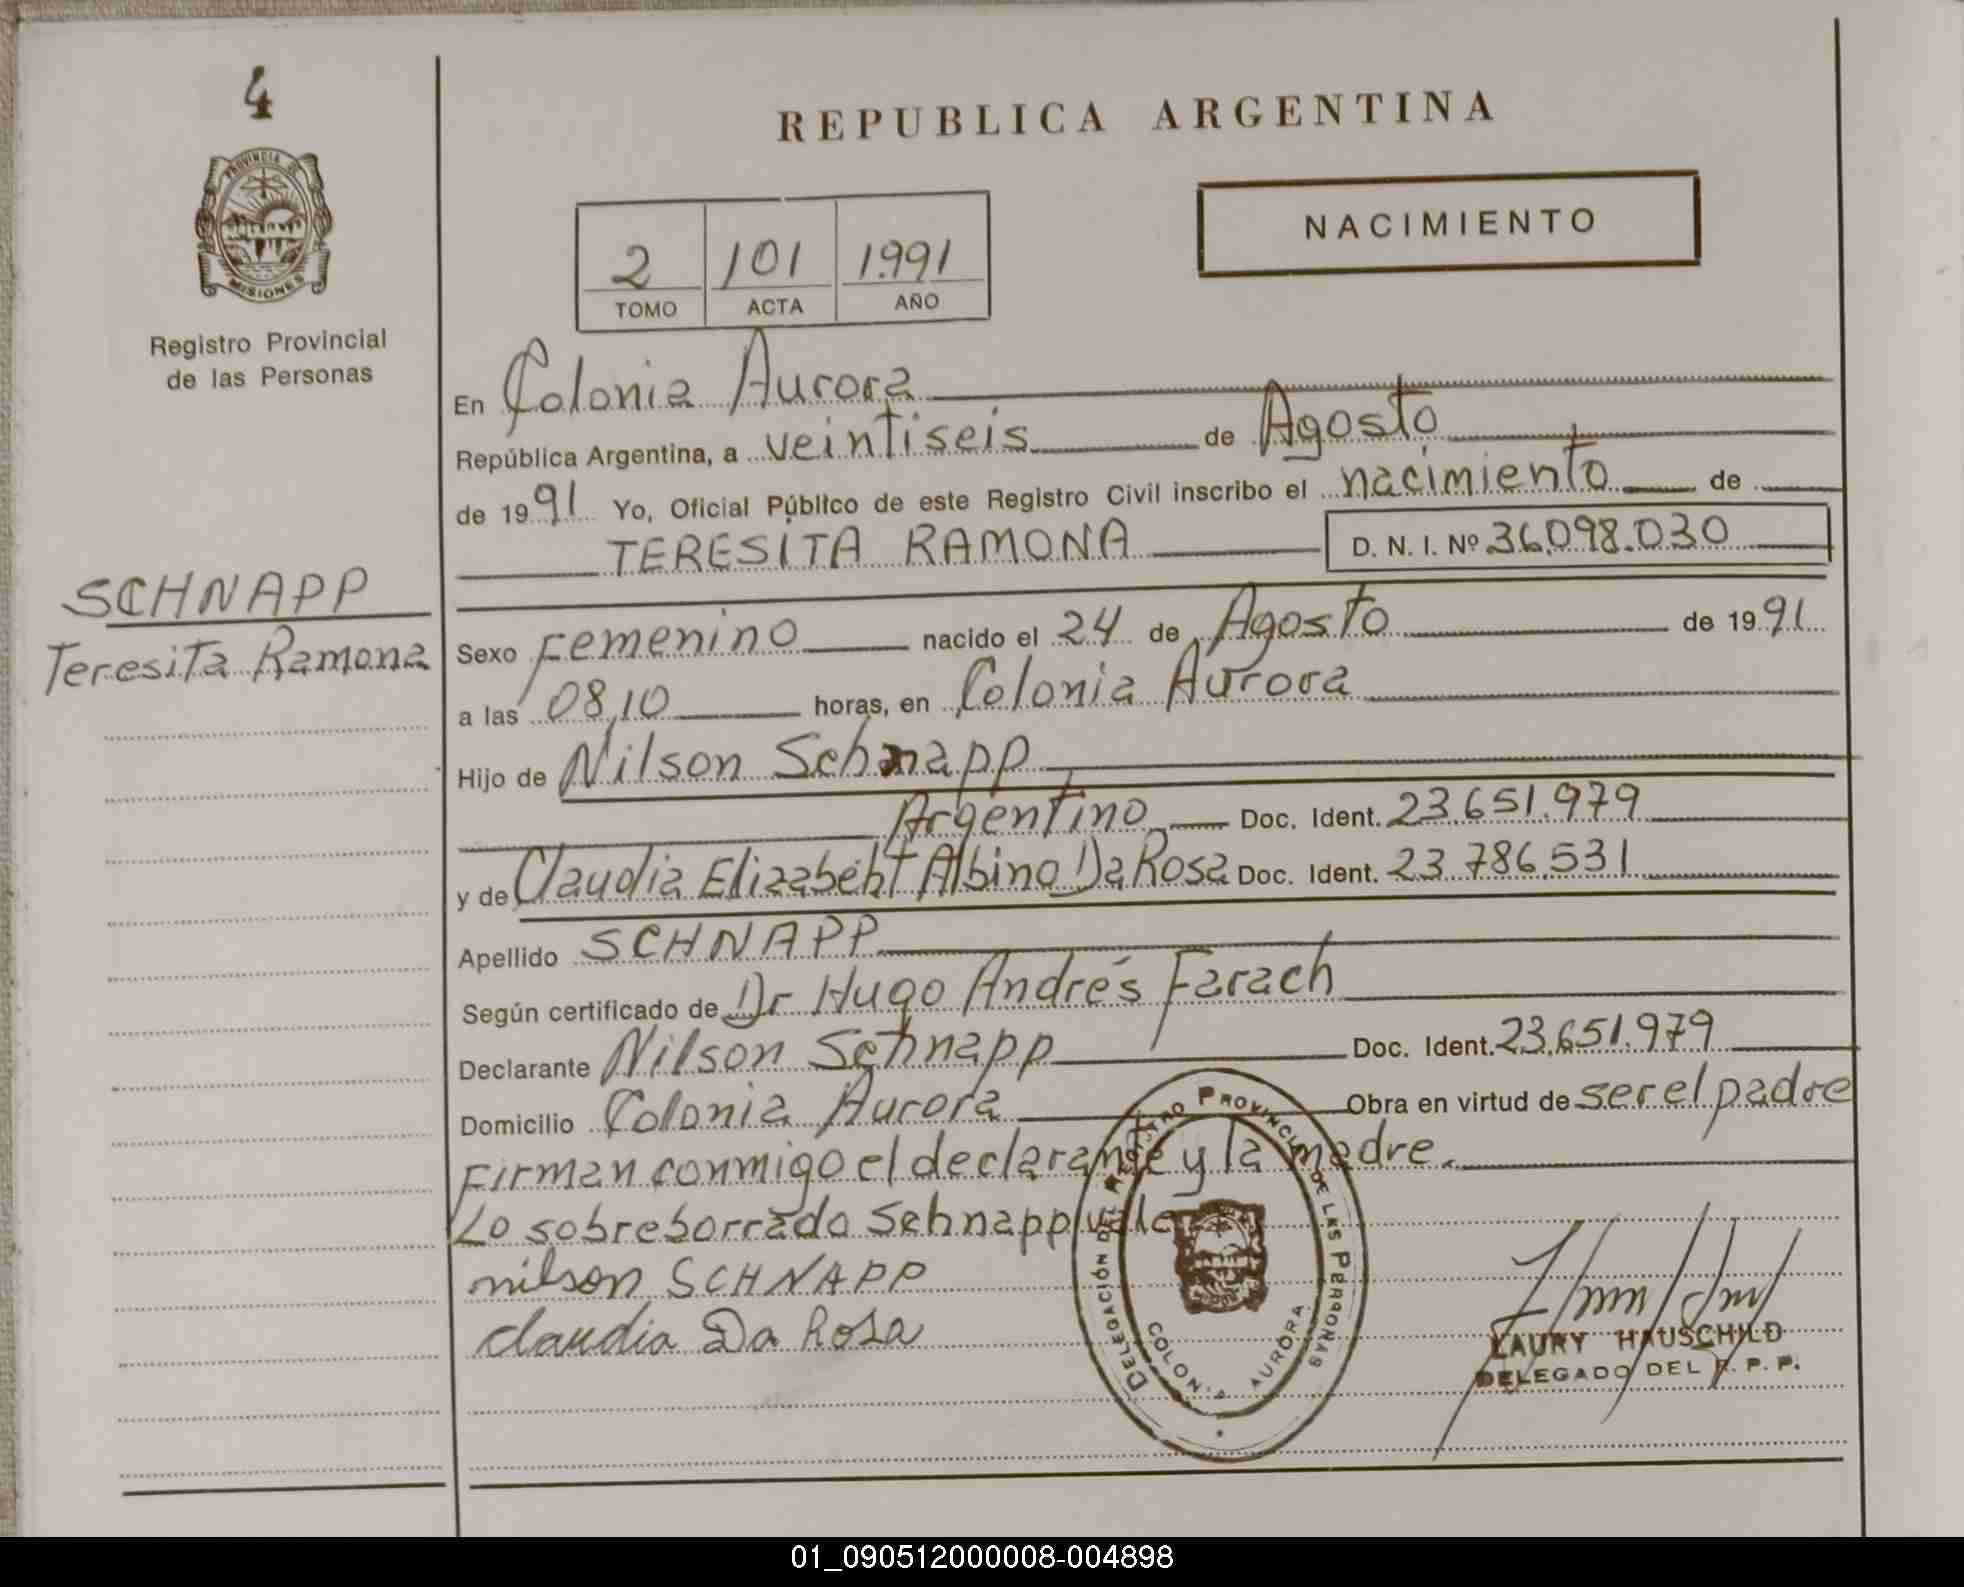 4
PROVINCIA DE
MISIONES
Registro Provincial
de las Personas
SCHNAPP
Teresita Ramona
REPUBLICA ARGENTINA
NACIMIENTO
2 101 1991
TOMO ACTA AÑO
En Colonia Aurora
República Argentina, a veintiseis de Agosto
de 1991 Yo, Oficial Público de este Registro Civil inscribo el nacimiento de
TERESITA RAMONA D. N. I. Nº 36.098.030
Sexo Femenino nacido el 24 de Agosto de 1991
a las 08,10 horas, en Colonia Aurora
Hijo de Nilson Schnapp
Argentino Doc. Ident. 23.651.979
y de Claudia Elizabeht Albino Da Rosa Doc. Ident. 23.786.531
Apellido SCHNAPP
Según certificado de Dr Hugo Andrés Farach
Declarante Nilson Schnapp Doc. Ident. 23.651.979
Domicilio Colonia Aurora Obra en virtud de ser el padre
Firman conmigo el declarante y la madre.
Lo sobreborrado Schnapp vale
nilson SCHNAPP
claudia Da Rosa
DELEGACIÓN DEL REGISTRO PROVINCIAL DE LAS PERSONAS
COLONIA AURORA
LAURY HAUSCHILD
DELEGADO DEL R. P. P.
01_090512000008-004898